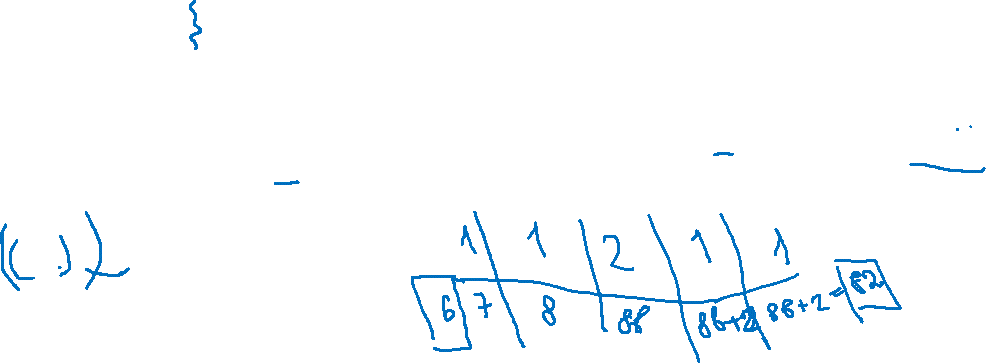 }
(( . ) )
1 | 1 | 2 | 1 | 1
6 | 7 | 8 | 88 | 88+2 | 88+2 = 82